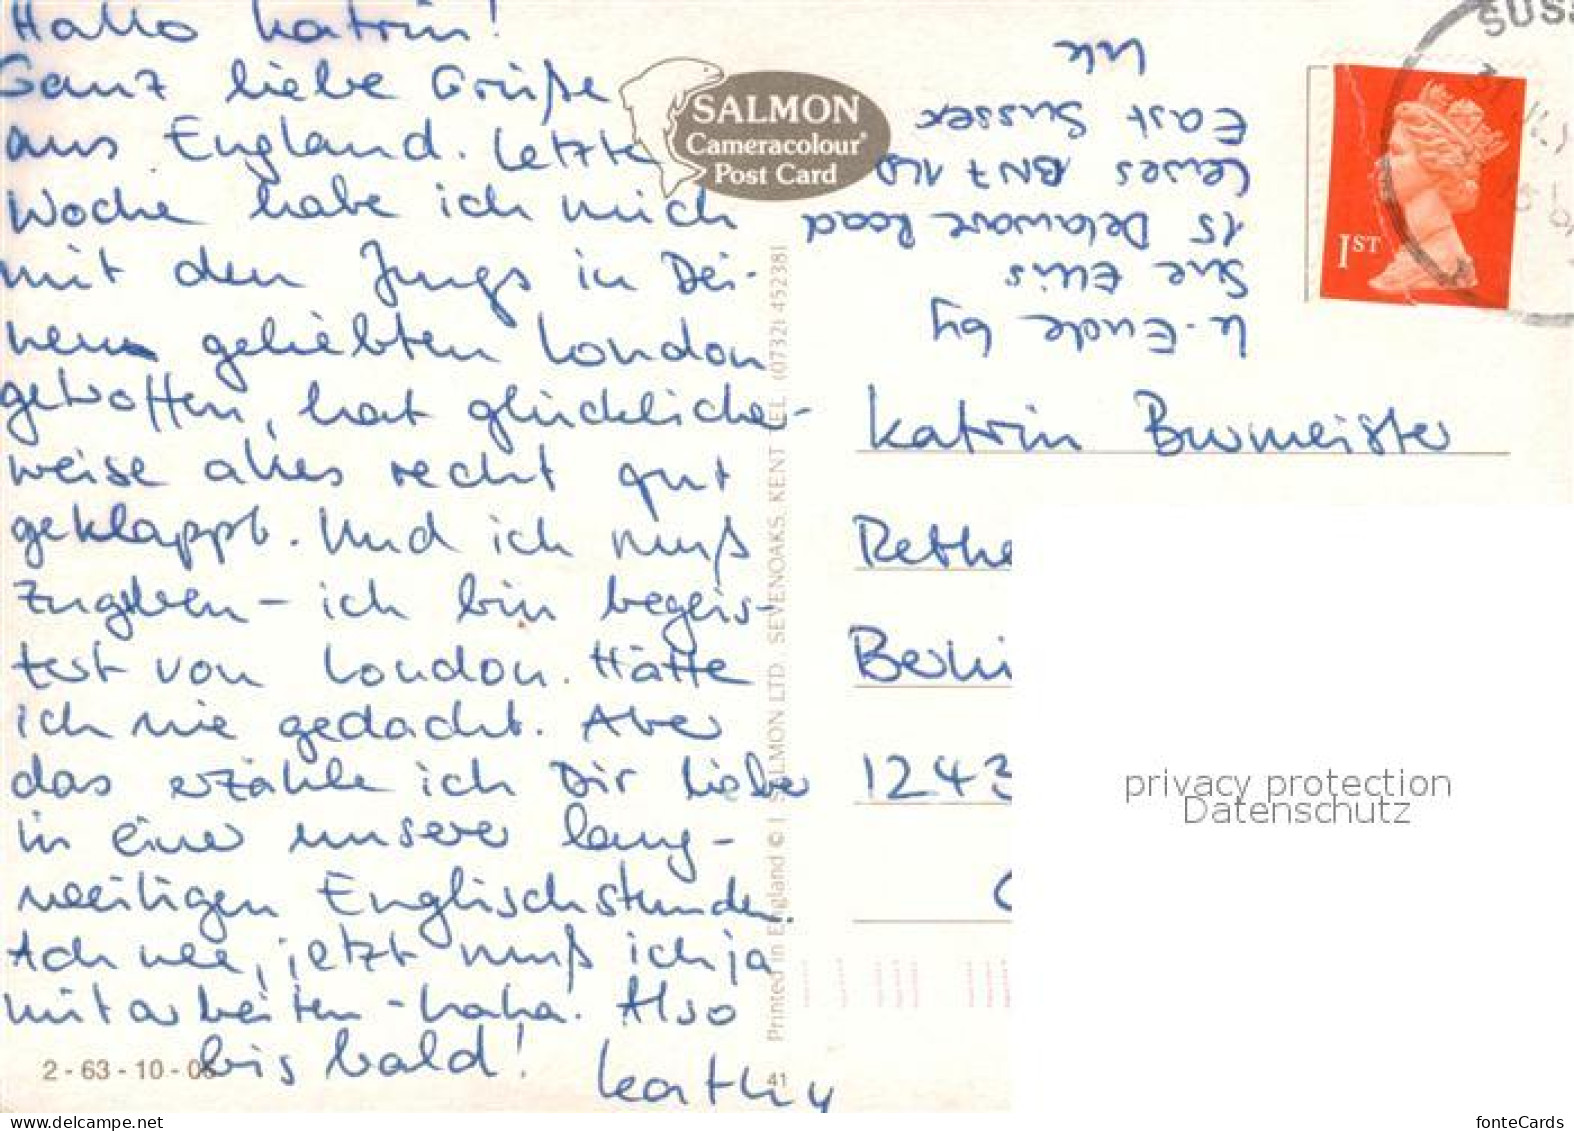 Hallo Katrin!
Ganz liebe Grüße
aus England. Letzte
Woche habe ich mich
mit den Jungs in Dei-
nem geliebten London
getroffen, hat glücklicher-
weise alles recht gut
geklappt. Und ich muß
zugeben - ich bin begeis-
tert von London. Hätte
ich nie gedacht. Aber
das erzähle ich Dir lieber
in einer unserer lang-
weiligen Englischstunden.
Ach nee, jetzt muß ich ja
mitarbeiten - haha. Also
bis bald!
Kathy
2 - 63 - 10 - 0
SALMON
Cameracolour®
Post Card
Printed in England © J. SALMON LTD. SEVENOAKS, KENT TEL. (0732) 452381
41
K. Ende by
Sue Ellis
15 Delaware Road
Lewes BN7 1LD
East Sussex
UK
SUSS
1ST
Katrin Burmeister
Rethe
Berli
1243
privacy protection
Datenschutz
fonteCards